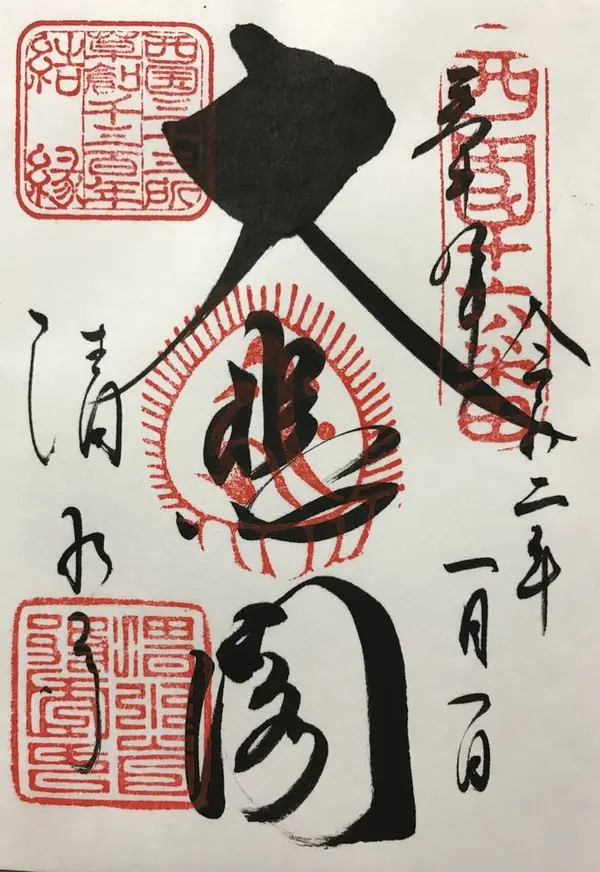 奉拝
西国十六番
令和二年
一月一日
大悲閣
西国三十三所
草創千三百年
結縁
清水寺